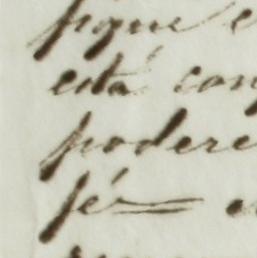 pque e
está con
podere
fé — e